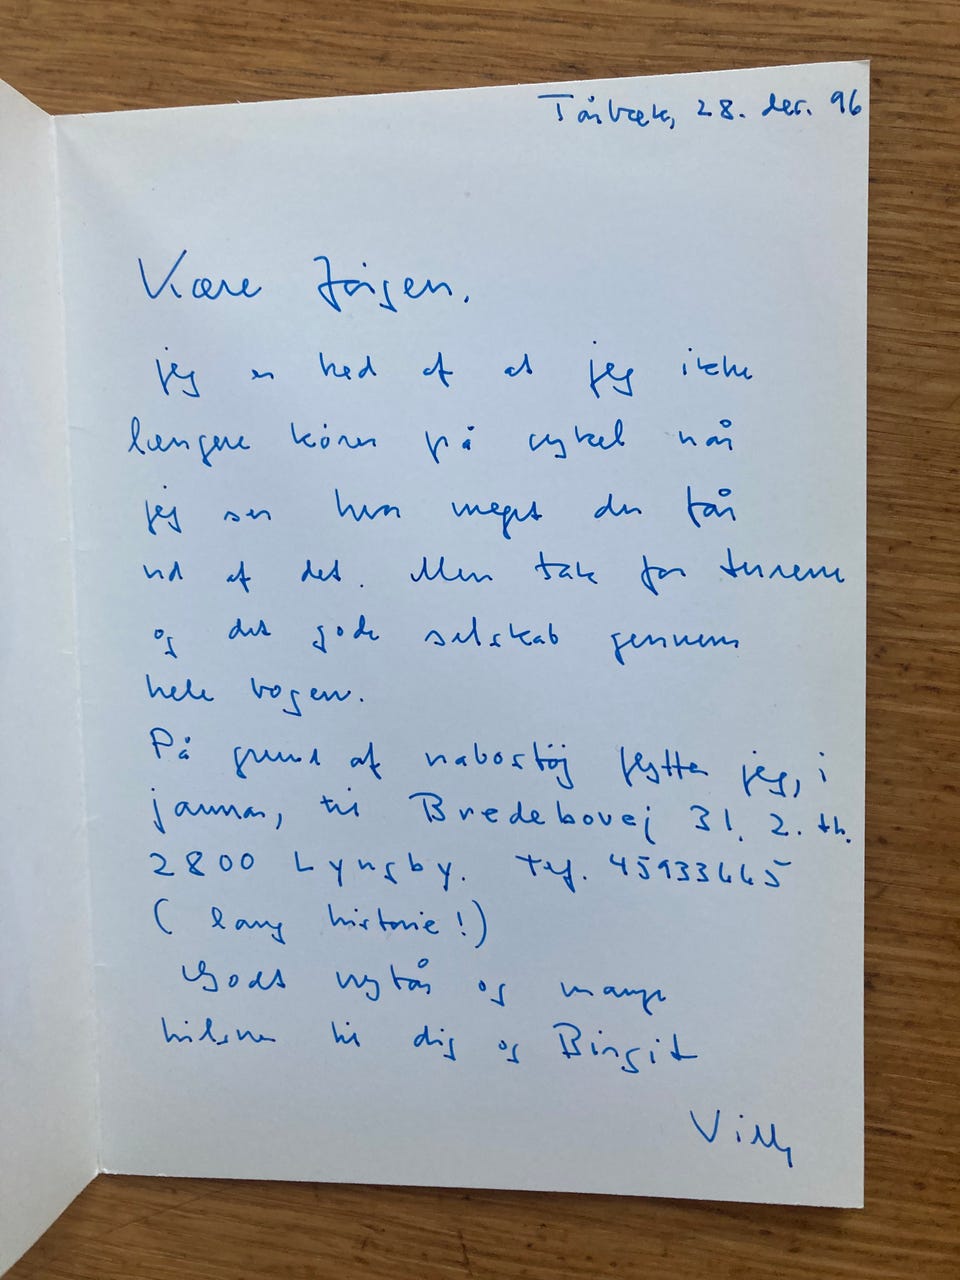 Tårbæk, 28. dec. 96
Kære Jörgen.
jeg er ked af at jeg ikke
længere kører på cykel når
jeg ser hvor meget du får
ud af det. Men tak for turene
og det gode selskab gennem
hele bogen.
På grund af nabostöj flytter jeg, i
januar, til Bredebovej 31. 2. th.
2800 Lyngby. Tlf.
(lang historie!)
Godt nytår og mange
hilsner til dig og Birgit
Villy